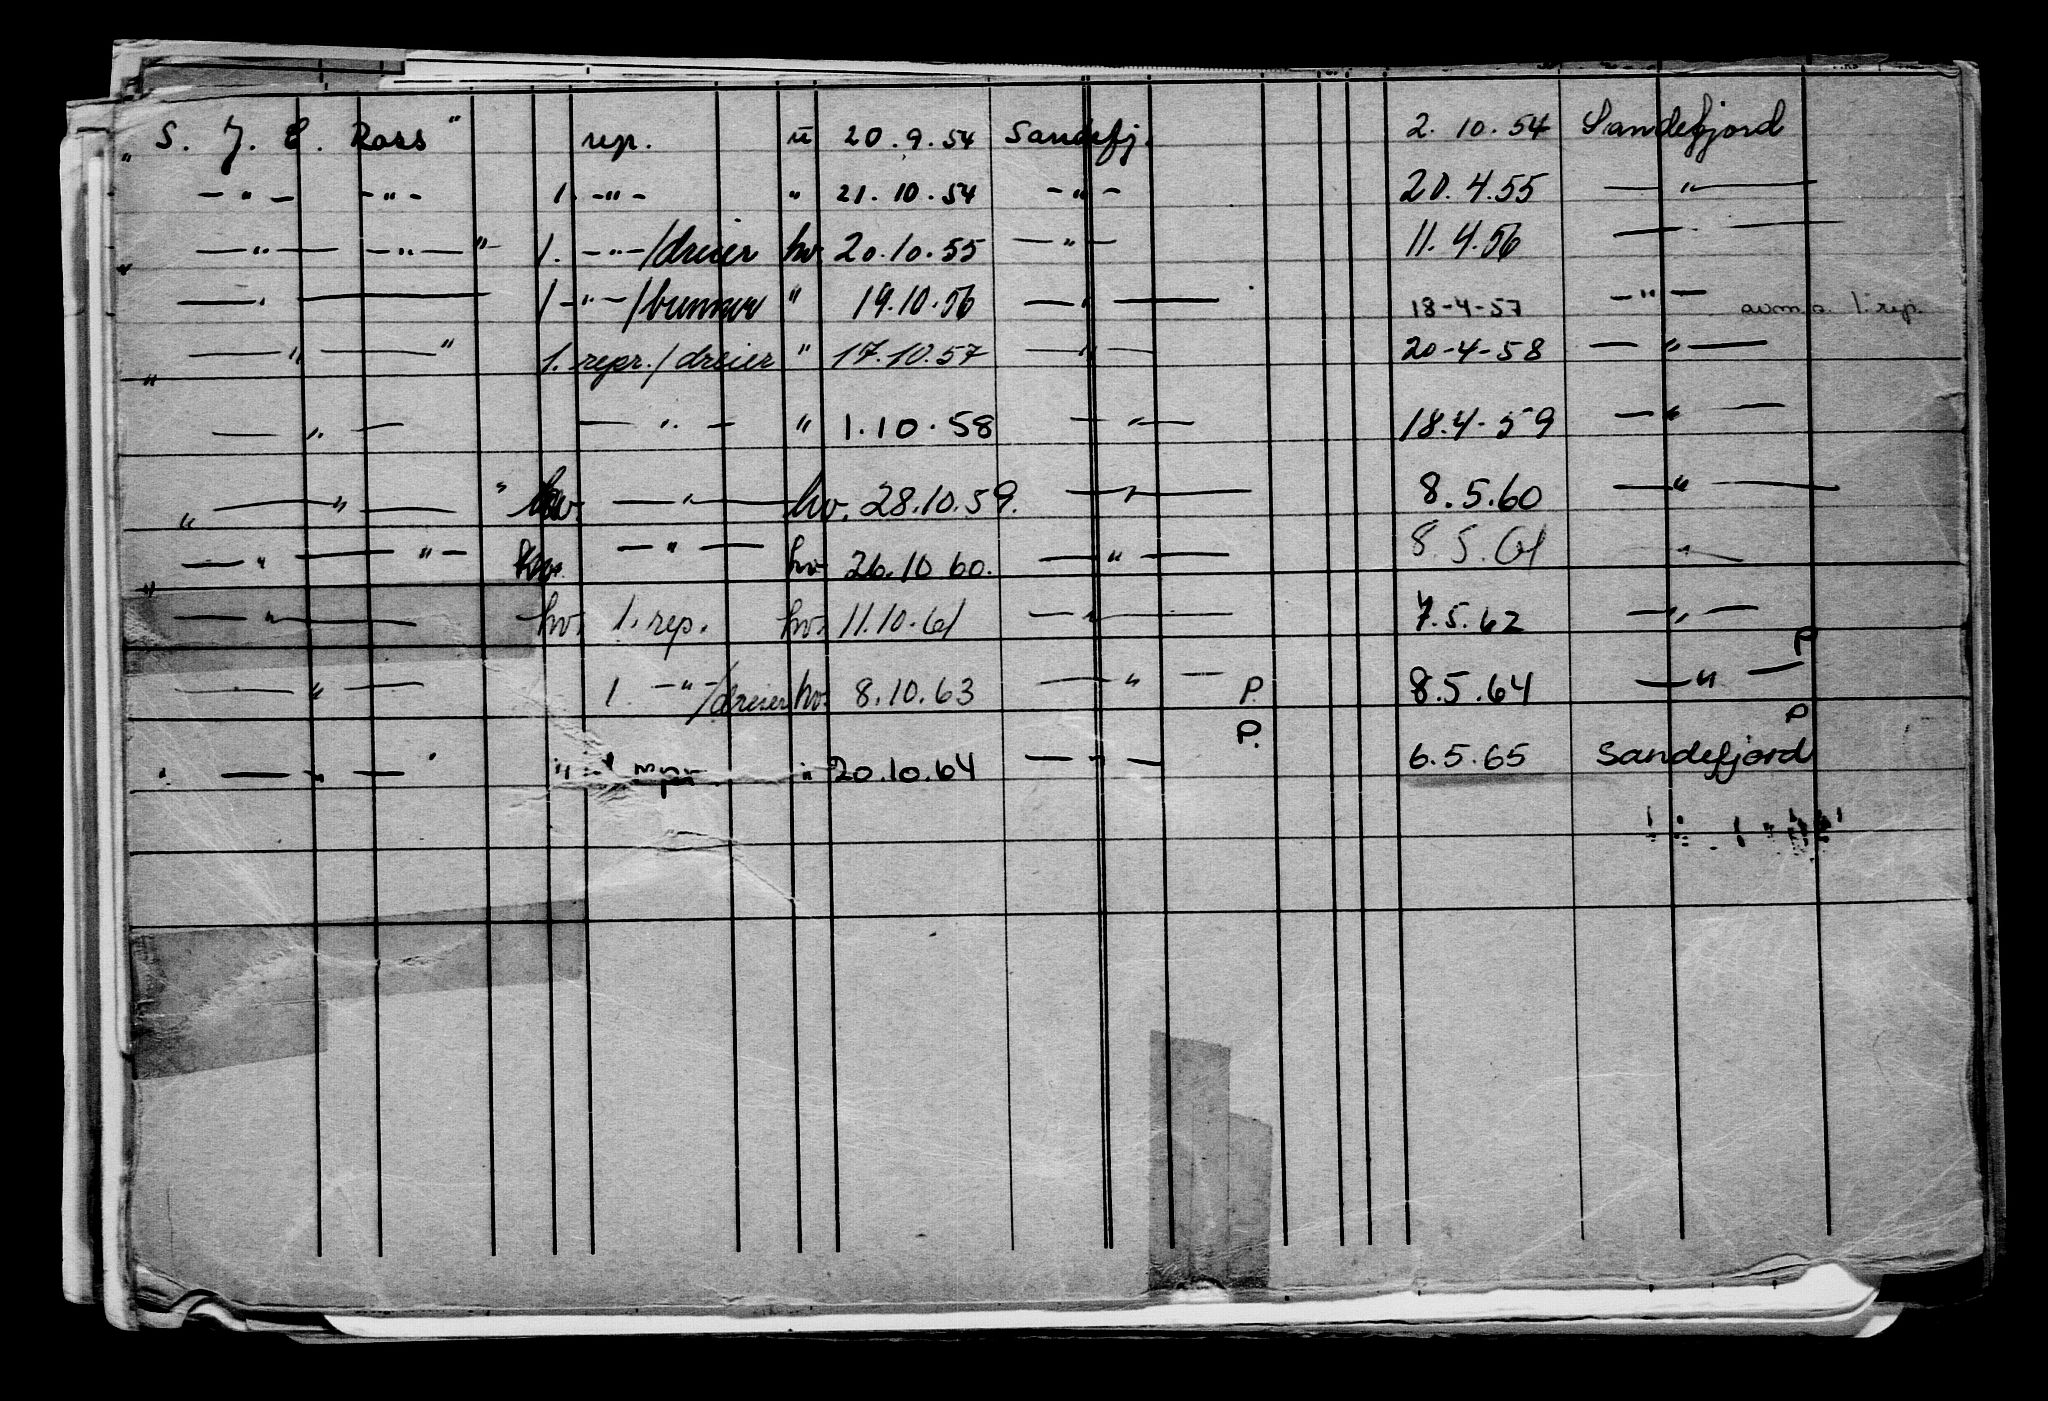 „ S. J. E. Ross " rep. ü 20.9.54 Sandefj. 2.10.54 Sandefjord
— " — — " — 1. — " — " 21.10.54 — " — 20.4.55 — " —
— " — — " — " 1. — " — /dreier hv. 20.10.55 — " — 11.4.56 — —
— " — 1 — " — / " 19.10.56 — " — 18-4-57 — " — 1. rep.
— " — " 1. repr./dreier " 17.10.57 — " — 20-4-58 — " —
— " — — " — " 1.10.58 — " — 18.4-59 — " —
„ — " — " hv. — " — hv. 28.10.59. — " — 8.5.60 — " —
„ — " — " — hv. — " — hv. 26.10.60. — " — 8.5.61 — " —
— " — hv. 1. rep. hv. 11.10.61 — " — 7.5.62 — " —
— " — 1. — " — /dreier hv. 8.10.63 — " — P. 8.5.64 — " — P
— " — " " 20.10.64 — " — P. 6.5.65 Sandefjord P